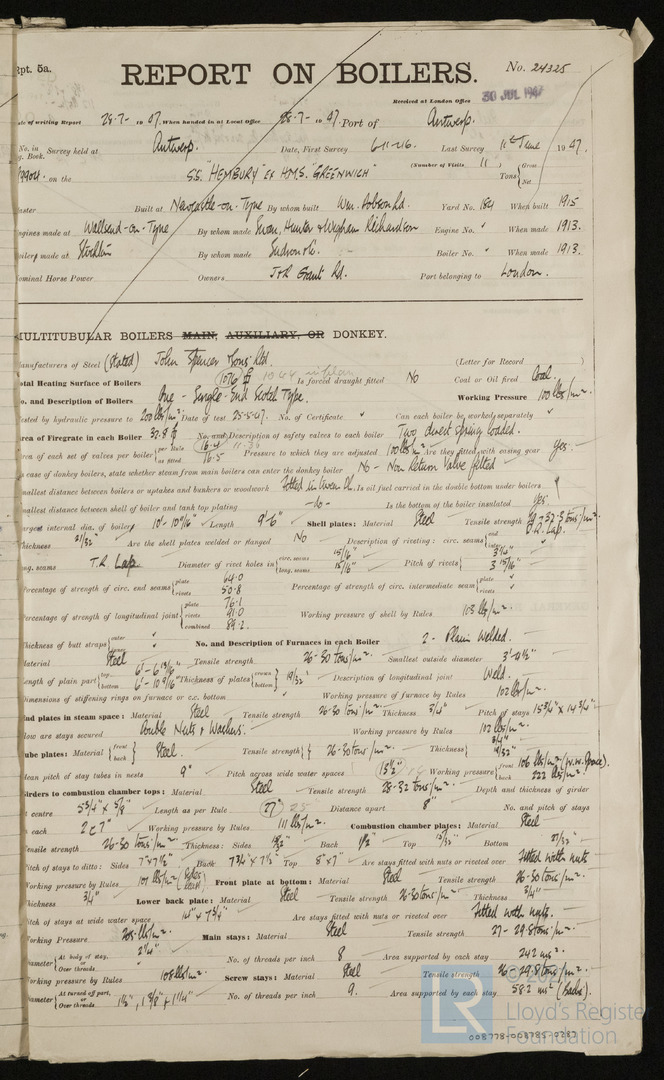 Rpt. 5a.
No. 24325
REPORT ON BOILERS.
Received at London Office 30 JUL 1947
Date of writing Report 28-7- 1947. When handed in at Local Office 28-7- 1947. Port of Antwerp.
No. in Reg. Book. Survey held at Antwerp. Date, First Survey 6-11-'46. Last Survey 11th June 1947.
on the S.S. "HEMBURY" ex H.M.S. "GREENWICH" (Number of Visits 11) Tons {Gross Net
Master Built at Newcastle-on-Tyne By whom built Wm. Dobson Ld. Yard No. 184 When built 1915
Engines made at Wallsend-on-Tyne By whom made Swan, Hunter & Wigham Richardson Engine No. " When made 1913.
Boilers made at Stockton By whom made Boiler No. " When made 1913.
Nominal Horse Power Owners J & R Grant Ld. Port belonging to London.
MULTITUBULAR BOILERS MAIN, AUXILIARY, OR DONKEY.
Manufacturers of Steel (Stated) John Spencer & Sons Ltd. (Letter for Record )
Total Heating Surface of Boilers 1076 Is forced draught fitted No Coal or Oil fired Coal.
No. and Description of Boilers One - Single-End Scotch Type. Working Pressure 100 lbs/in².
Tested by hydraulic pressure to 200 lbs/in². Date of test 25-5-47. No. of Certificate " Can each boiler be worked separately "
Area of Firegrate in each Boiler 32.8 No. and Description of safety valves to each boiler Two direct spring loaded.
Area of each set of valves per boiler {per Rule 16.4 as fitted 16.5 Pressure to which they are adjusted 100 lbs/in² Are they fitted with easing gear Yes.
In case of donkey boilers, state whether steam from main boilers can enter the donkey boiler No - Non Return Valve fitted
Smallest distance between boilers or uptakes and bunkers or woodwork Is oil fuel carried in the double bottom under boilers
Smallest distance between shell of boiler and tank top plating -do- Is the bottom of the boiler insulated Yes.
Largest internal dia. of boiler 10'-10 9/16" Length 9'-6" Shell plates: Material Steel Tensile strength
Thickness 21/32" Are the shell plates welded or flanged No Description of riveting: circ. seams {end D.R. Lap. inter. "
long. seams T.R. Lap. Diameter of rivet holes in {circ. seams 15/16" long. seams 15/16" Pitch of rivets { 3 1/16" 3 15/16"
Percentage of strength of circ. end seams {plate 64.0 rivets 50.8 Percentage of strength of circ. intermediate seam {plate " rivets "
Percentage of strength of longitudinal joint {plate 76.1 rivets 91.0 combined 89.2. Working pressure of shell by Rules 103 lbs/in².
Thickness of butt straps {outer " inner " No. and Description of Furnaces in each Boiler 2 - Plain Welded.
Material Steel Tensile strength 26-30 tons/in². Smallest outside diameter
Length of plain part {top 6'-6 13/16" bottom 6'-10 9/16" Thickness of plates {crown bottom 19/32" Description of longitudinal joint Weld.
Dimensions of stiffening rings on furnace or c.c. bottom " Working pressure of furnace by Rules 102 lbs/in².
End plates in steam space: Material Steel Tensile strength 26-30 tons/in². Thickness 3/4" Pitch of stays 15 3/4" x 14 3/4"
How are stays secured Double Nuts & Washers. Working pressure by Rules 102 lbs/in².
Tube plates: Material {front back Steel. Tensile strength { 26-30 tons/in². Thickness { 3/4" 19/32"
Mean pitch of stay tubes in nests 9" Pitch across wide water spaces 13 1/2" Working pressure {front 106 lbs/in² (w.w. Space). back 222 lbs/in².
Girders to combustion chamber tops: Material Steel Tensile strength 28-32 tons/in². Depth and thickness of girder
at centre 5 3/4" x 5/8" Length as per Rule 27" Distance apart 8" No. and pitch of stays
in each 2 @ 7" Working pressure by Rules 111 lbs/in². Combustion chamber plates: Material Steel
Tensile strength 26-30 tons/in². Thickness: Sides Back Top Bottom 27/32"
Pitch of stays to ditto: Sides 7" x 7 1/2" Back 7 3/4" x 7 1/2" Top 8" x 7" Are stays fitted with nuts or riveted over Fitted with nuts
Working pressure by Rules 107 lbs/in² Front plate at bottom: Material Steel Tensile strength 26-30 tons/in².
Thickness 3/4" Lower back plate: Material Steel Tensile strength 26-30 tons/in² Thickness 3/4"
Pitch of stays at wide water space 14" x 7 3/4" Are stays fitted with nuts or riveted over Fitted with nuts.
Working Pressure 205 lbs/in². Main stays: Material Steel Tensile strength 27-29.8 tons/in².
Diameter {At body of stay, 2 1/4" Over threads. " No. of threads per inch 8 Area supported by each stay 242 ins².
Working pressure by Rules 108 lbs/in². Screw stays: Material Steel Tensile strength 26-29.8 tons/in².
Diameter {At turned off part, Over threads. 1 1/2", 1 3/8" & 1 1/4" No. of threads per inch 9. Area supported by each stay 58.2 ins² (Backs).
LR
© 202
Lloyd's Register
Foundation
008778-008785-0287